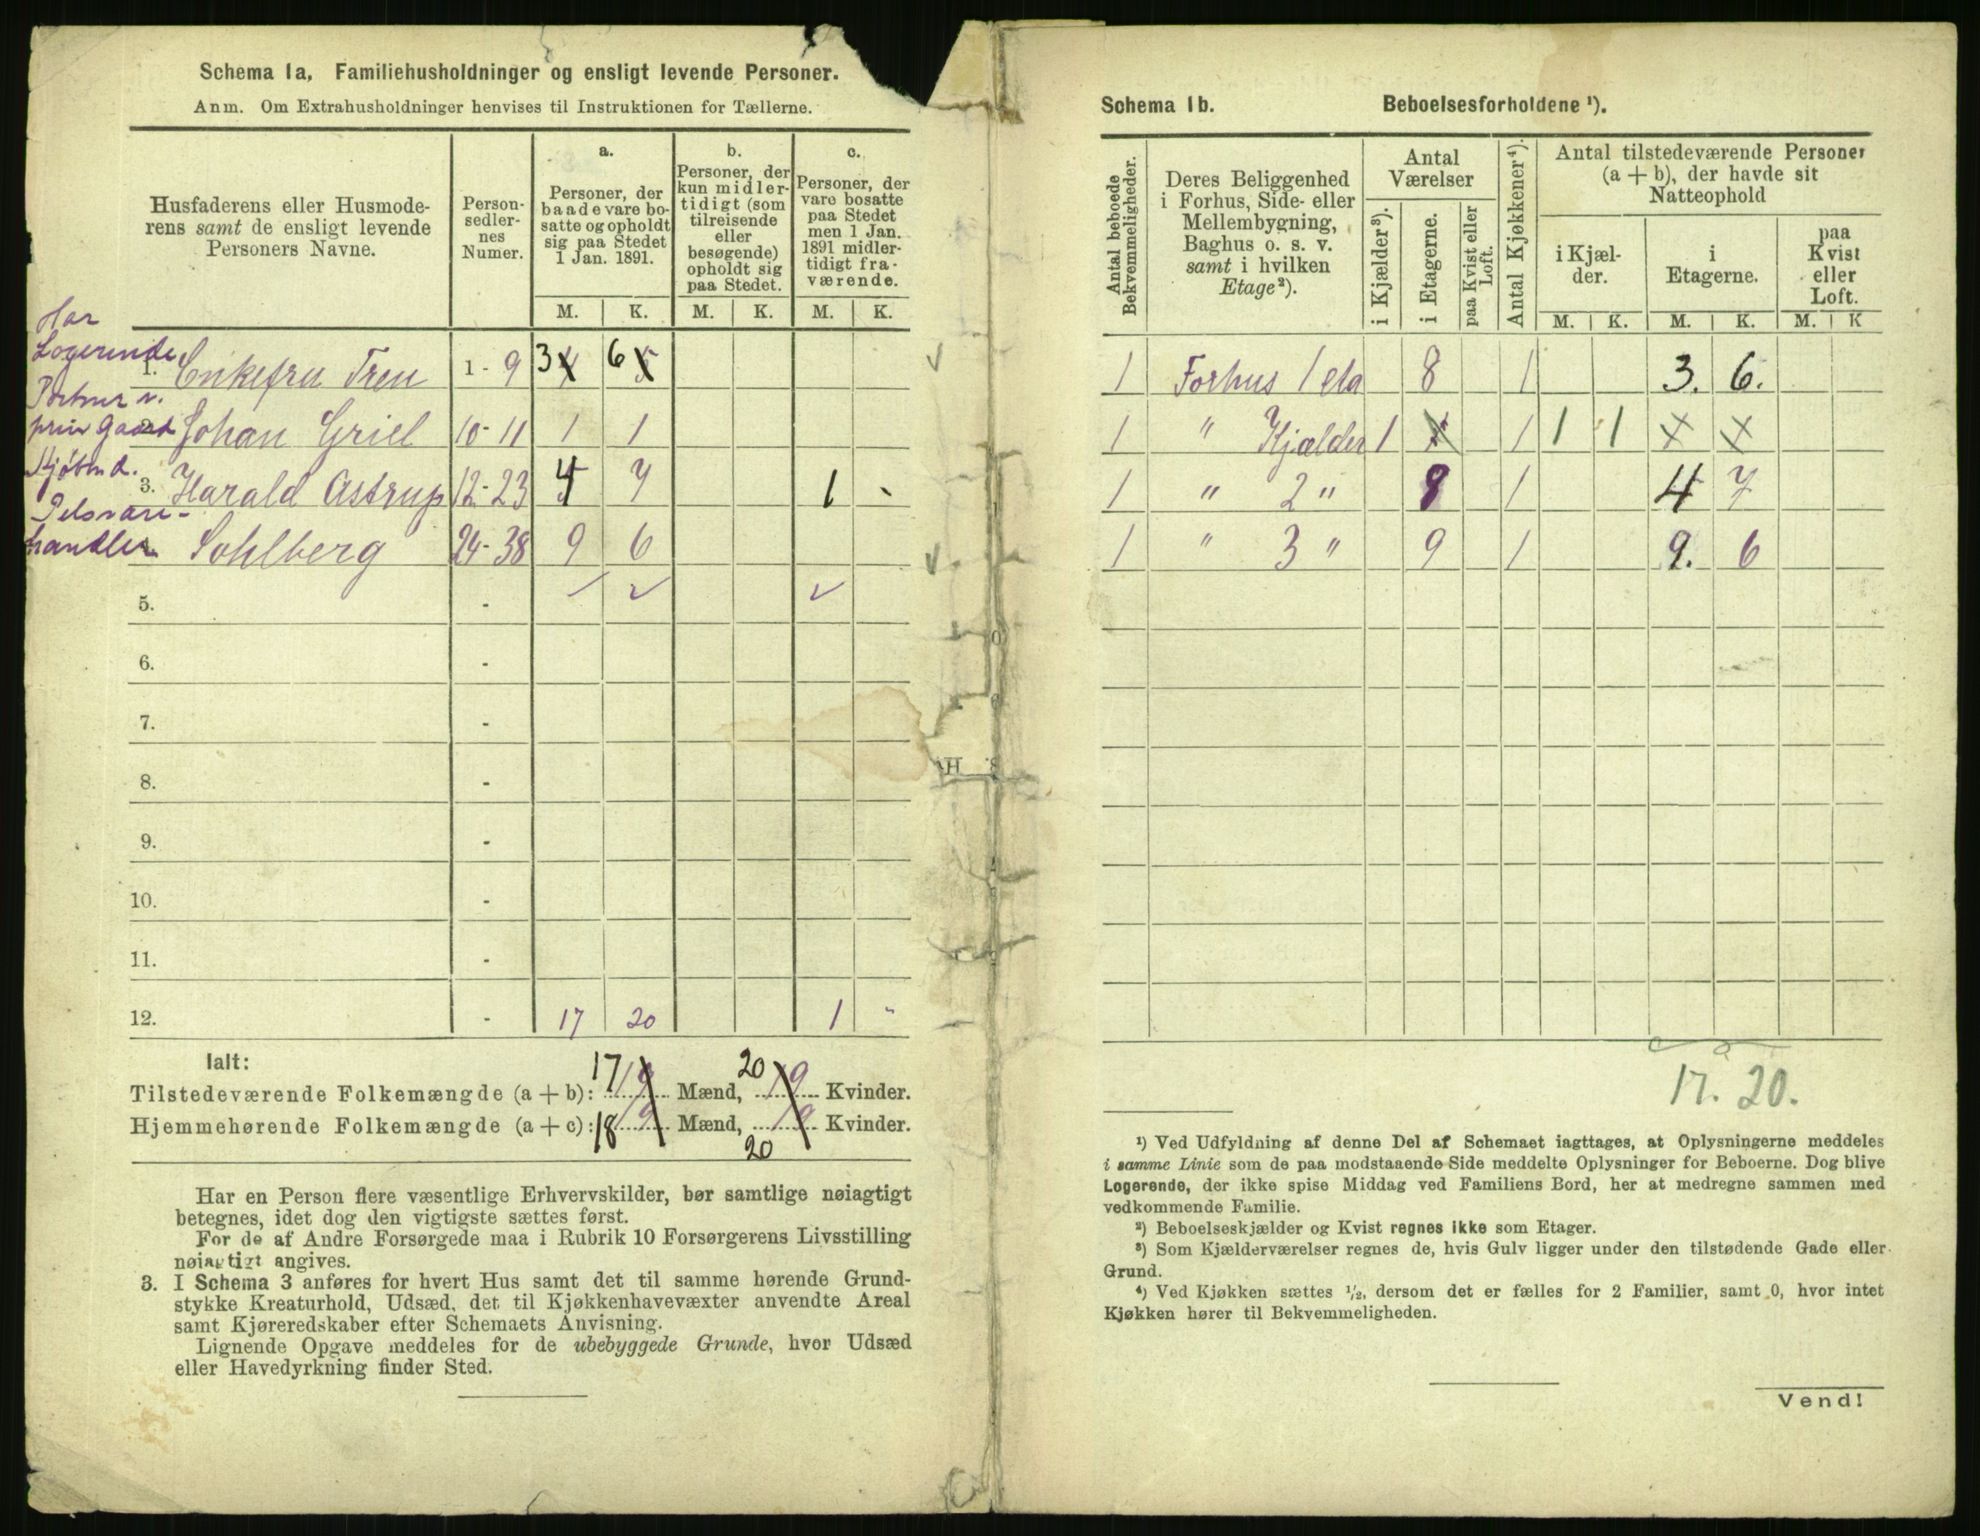 Schema 1a, Familiehusholdninger og ensligt levende Personer.
Anm. Om Extrahusholdninger henvises til Instruktionen for Tællerne.
Husfaderens eller Husmode-
rens samt de ensligt levende
Personers Navne.
Person-
sedler-
nes
Numer.
a.
Personer, der
baade vare bo-
satte og opholdt
sig paa Stedet
1 Jan. 1891.
b.
Personer, der
kun midler-
tidigt (som
tilreisende
eller
besøgende)
opholdt sig
paa Stedet.
c.
Personer, der
vare bosatte
paa Stedet
men 1 Jan.
1891 midler-
tidigt fra-
værende.
M. K. M. K. M. K.
Har
Logerende
1. Enkefru Treu 1 - 9 3 6
Portner v.
priv Gaard
Johan Griel 10 - 11 1 1
Kjøbmd.
3. Harald Astrup 12 - 23 4 7 1 -
Pelsvare-
handler
Sohlberg 24 - 38 9 6
5. -
6. -
7. -
8. -
9. -
10. -
11. -
12. - 17 20 1 "
Ialt:
Tilstedeværende Folkemængde (a + b): 17 19 Mænd, 20 19 Kvinder.
Hjemmehørende Folkemængde (a + c): 18 19 Mænd, 20 19 Kvinder.
Har en Person flere væsentlige Erhvervskilder, bør samtlige nøiagtigt
betegnes, idet dog den vigtigste sættes først.
For de af Andre Forsørgede maa i Rubrik 10 Forsørgerens Livsstilling
nøiagtigt angives.
3. I Schema 3 anføres for hvert Hus samt det til samme hørende Grund-
stykke Kreaturhold, Udsæd, det til Kjøkkenhavevæxter anvendte Areal
samt Kjøreredskaber efter Schemaets Anvisning.
Lignende Opgave meddeles for de ubebyggede Grunde, hvor Udsæd
eller Havedyrkning finder Sted.
Schema 1b. Beboelsesforholdene ¹).
Antal beboede
Bekvemmeligheder.
Deres Beliggenhed
i Forhus, Side- eller
Mellembygning,
Baghus o. s. v.
samt i hvilken
Etage²).
Antal
Værelser
i Kjælder³).
i Etagerne.
paa Kvist eller
Loft.
Antal Kjøkkener⁴).
Antal tilstedeværende Personer
(a + b), der havde sit
Natteophold
i Kjæl-
der.
i
Etagerne.
paa
Kvist
eller
Loft.
M. K. M. K. M. K
1 Forhus 1 eta 8 1 3. 6.
1 " Kjælder 1 1 1 1
1 " 2 " 8 1 4 7
1 " 3 " 9 1 9. 6
17. 20.
¹) Ved Udfyldning af denne Del af Schemaet iagttages, at Oplysningerne meddeles
i samme Linie som de paa modstaaende Side meddelte Oplysninger for Beboerne. Dog blive
Logerende, der ikke spise Middag ved Familiens Bord, her at medregne sammen med
vedkommende Familie.
²) Beboelseskjælder og Kvist regnes ikke som Etager.
³) Som Kjælderværelser regnes de, hvis Gulv ligger under den tilstødende Gade eller
Grund.
⁴) Ved Kjøkken sættes ½, dersom det er fælles for 2 Familier, samt 0, hvor intet
Kjøkken hører til Bekvemmeligheden.
Vend!